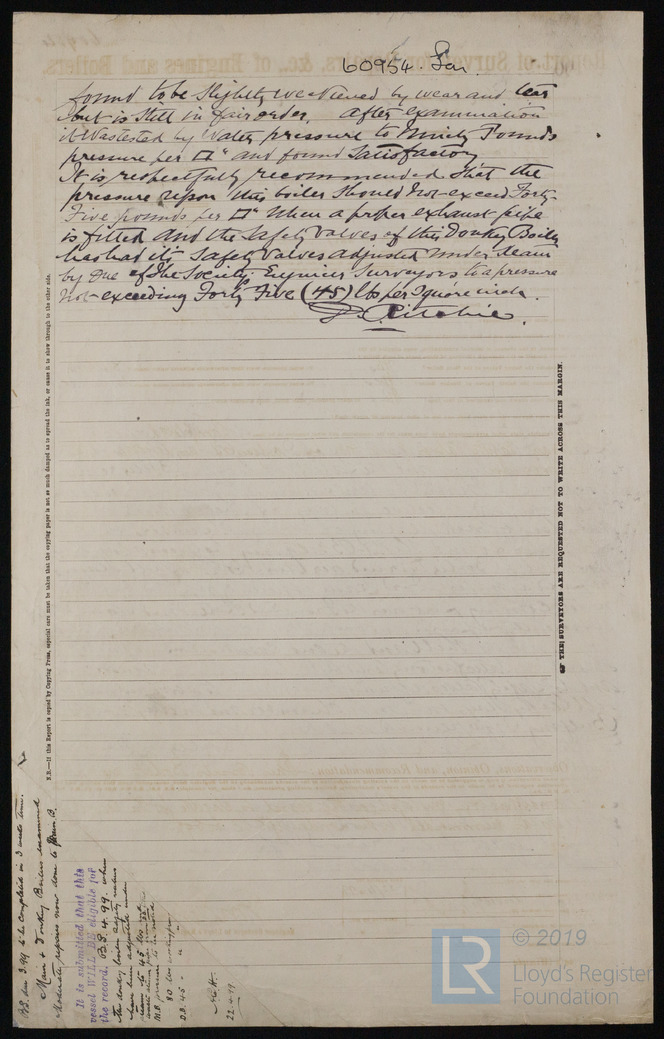 60954 Lon.
found to be slightly weakened by wear and tear
but is still in fair order. After examination
it was tested by water pressure to Ninety Pounds
pressure per □" and found Satisfactory
It is respectfully recommended that the
pressure upon this boiler should not exceed Forty
Five pounds per □" When a proper exhaust pipe
is fitted and the Safety Valves of this Donkey Boiler
has had its Safety Valves adjusted under steam
by one of the Society's Engineer Surveyors to a pressure
not exceeding Forty Five (45) lbs per Square inch.
Ritchie
N.B.—If this Report is copied by Copying Press, especial care must be taken that the copying paper is not so much damped as to spread the ink, or cause it to show through to the other side.
OF THE SURVEYORS ARE REQUESTED NOT TO WRITE ACROSS THIS MARGIN.
3.99 to be completed in 3 weeks time.
Main & Donkey Boilers examined
Moderate repairs now done to
It is submitted that this
vessel WILL BE eligible for
the record. B.S. 4.99. when
the donkey boiler safety valves
have been adjusted under
steam to 45 lbs
M.B.
80 lbs
D.B. 45 " "
22.4.99
LR
© 2019
Lloyd's Register
Foundation